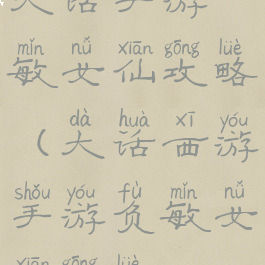 大话手游
mǐn nǚ xiān gōng lüè
敏女仙攻略
dà huà xī yóu
（大话西游
shǒu yóu fù mǐn nǚ
手游负敏女
xiān gōng lüè